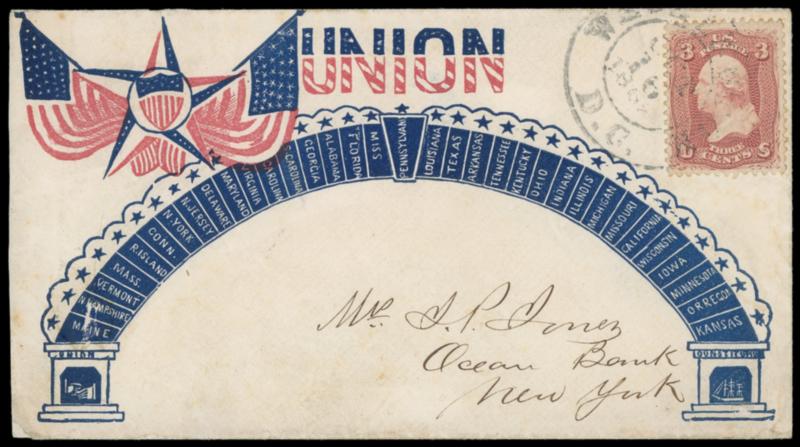 UNION
U.S.
POSTAGE
3 3
THREE
U CENTS S
D.C.
MAINE
N.HAMPSHIRE
VERMONT
MASS.
R.ISLAND
CONN.
N.YORK
N.JERSEY
DELAWARE
MARYLAND
VIRGINIA
N.CAROLINA
S.CAROLINA
GEORGIA
ALABAMA
FLORIDA
MISS
PENNSYLVAN
LOUISIANA
TEXAS
ARKANSAS
TENNESSEE
KENTUCKY
OHIO
INDIANA
ILLINOIS
MICHIGAN
MISSOURI
CALIFORNIA
WISCONSIN
IOWA
MINNESOTA
ORREGON
KANSAS
UNION
Mr. I. P. Jones
Ocean Bank
New York